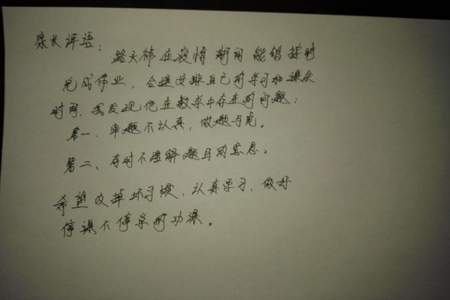 家长评语：
路天柿在疫情期间能够按时
完成作业，合理安排自己的学习和娱乐
时间，我发现他在数学中存在的问题：
第一、审题不认真，做题马虎。
第二、有时不理解题目的意思。
希望改掉坏习惯，认真学习，做好
停课不停学的功课。